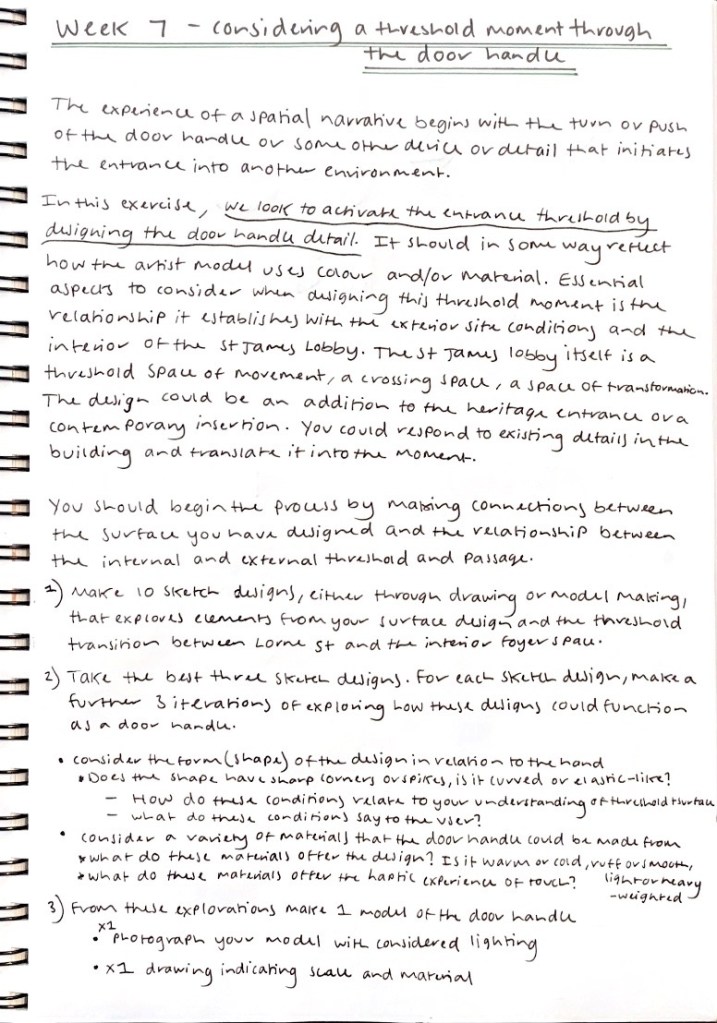 Week 7 - considering a threshold moment through
the door handle
The experience of a spatial narrative begins with the turn or push
of the door handle or some other device or detail that initiates
the entrance into another environment.
In this exercise, we look to activate the entrance threshold by
designing the door handle detail. It should in some way reflect
how the artist model uses colour and/or material. Essential
aspects to consider when designing this threshold moment is the
relationship it establishes with the exterior site conditions and the
interior of the St James Lobby. The St James lobby itself is a
threshold space of movement, a crossing space, a space of transformation.
The design could be an addition to the heritage entrance or a
contemporary insertion. You could respond to existing details in the
building and translate it into the moment.
You should begin the process by making connections between
the surface you have designed and the relationship between
the internal and external threshold and passage.
1) Make 10 sketch designs, either through drawing or model making,
that explores elements from your surface design and the threshold
transition between Lorne St and the interior foyer space.
2) Take the best three sketch designs. For each sketch design, make a
further 3 iterations of exploring how these designs could function
as a door handle.
• consider the form (shape) of the design in relation to the hand
• Does the shape have sharp corners or spikes, is it curved or elastic-like?
- How do these conditions relate to your understanding of threshold + surface
- what do these conditions say to the user?
• consider a variety of materials that the door handle could be made from
* what do these materials offer the design? Is it warm or cold, ruff or smooth,
* what do these materials offer the haptic experience of touch? light or heavy
-weighted
3) From these explorations make 1 model of the door handle
• x1 photograph your model with considered lighting
• x1 drawing indicating scale and material